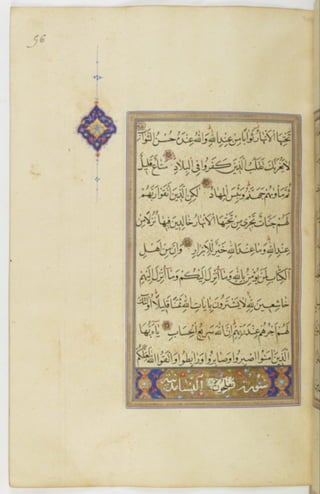 56
تَحْتِهَا الْاَنْهَارُ ثَوَابًا مِنْ عِنْدِ اللّٰهِ وَاللّٰهُ عِنْدَهُ حُسْنُ الثَّوَابِ
لَا يَغُرَّنَّكَ تَقَلُّبُ الَّذِينَ كَفَرُوا فِي الْبِلَادِ مَتَاعٌ قَلِيلٌ
ثُمَّ مَاْوٰيهُمْ جَهَنَّمُ وَبِئْسَ الْمِهَادُ لٰكِنِ الَّذِينَ اتَّقَوْا رَبَّهُمْ
لَهُمْ جَنَّاتٌ تَجْرِي مِنْ تَحْتِهَا الْاَنْهَارُ خَالِدِينَ فِيهَا نُزُلًا مِنْ
عِنْدِ اللّٰهِ وَمَا عِنْدَ اللّٰهِ خَيْرٌ لِلْاَبْرَارِ وَاِنَّ مِنْ اَهْلِ
الْكِتَابِ لَمَنْ يُؤْمِنُ بِاللّٰهِ وَمَا اُنْزِلَ اِلَيْكُمْ وَمَا اُنْزِلَ اِلَيْهِمْ
خَاشِعِينَ لِلّٰهِ لَا يَشْتَرُونَ بِاٰيَاتِ اللّٰهِ ثَمَنًا قَلِيلًا اُولٰئِكَ
لَهُمْ اَجْرُهُمْ عِنْدَ رَبِّهِمْ اِنَّ اللّٰهَ سَرِيعُ الْحِسَابِ يَا اَيُّهَا
الَّذِينَ اٰمَنُوا اصْبِرُوا وَصَابِرُوا وَرَابِطُوا وَاتَّقُوا اللّٰهَ لَعَلَّكُمْ
سورة تفلحون النساء